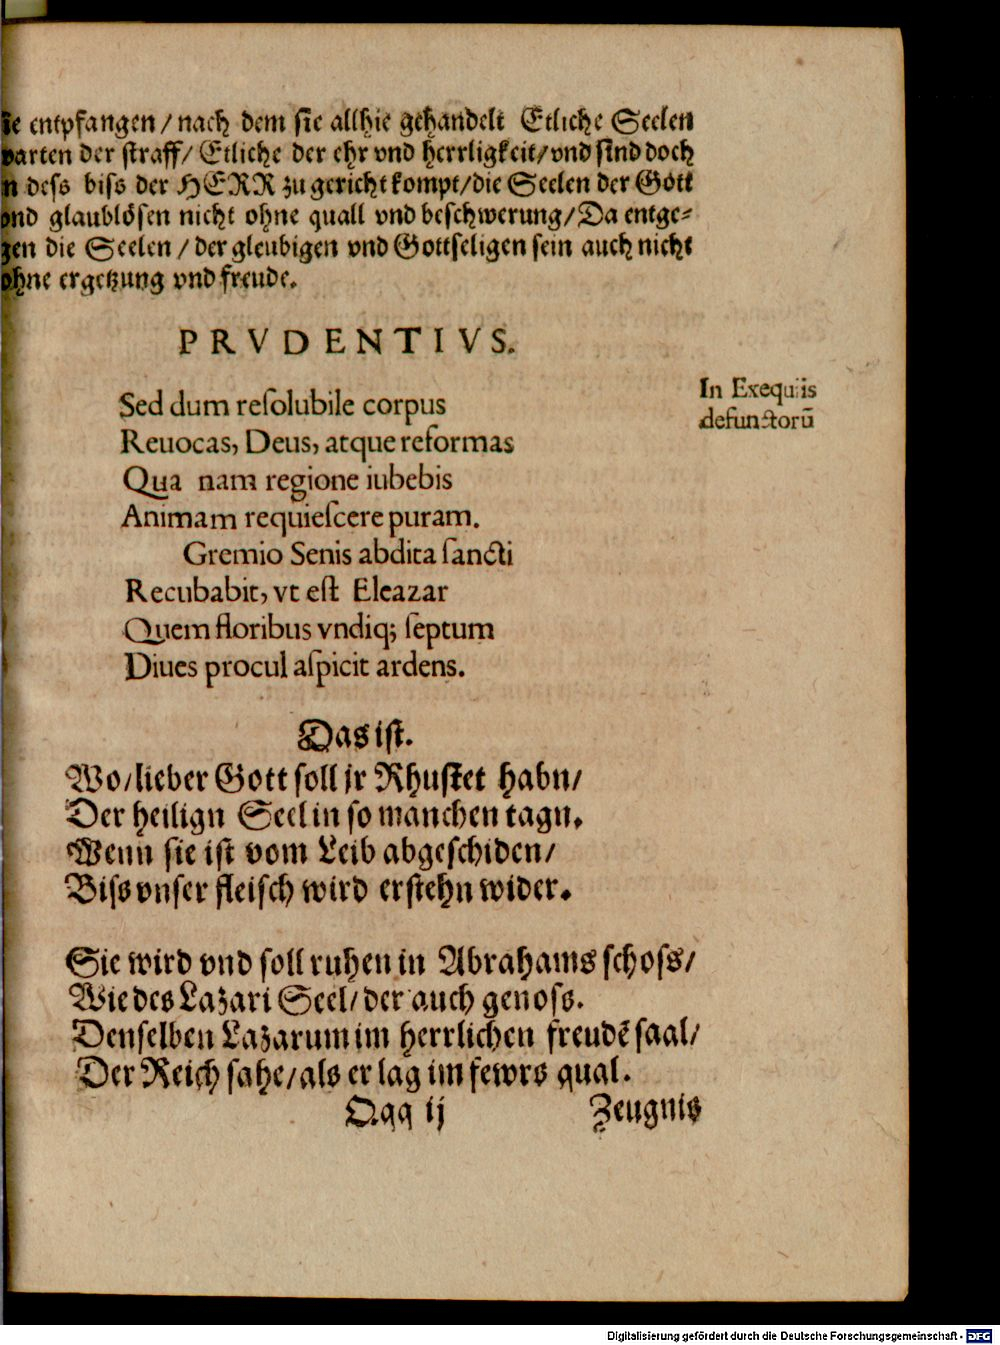 ie entpfangen / nach dem sie allhie gehandelt Etliche Seelen
warten der straff / Etliche der ehr vnd herrligkeit / vnd sind doch
n dess biss der HERR zu gericht kompt / die Seelen der Gott
vnd glaublösen nicht ohne quall vnd beschwerung / Da entge-
gen die Seelen / der gleubigen vnd Gottseligen sein auch nicht
ohne ergetzung vnd freude.
PRVDENTIVS.
In Exequiis
defunctorū
Sed dum resolubile corpus
Reuocas, Deus, atque reformas
Qua nam regione iubebis
Animam requiescere puram.
Gremio Senis abdita sancti
Recubabit, vt est Eleazar
Quem floribus vndiq; septum
Diues procul aspicit ardens.
Das ist.
Wo / lieber Gott soll jr Rhustet habn /
Der heilign Seel in so manchen tagn.
Wenn sie ist vom Leib abgeschiden /
Biss vnser fleisch wird erstehn wider.
Sie wird vnd soll ruhen in Abrahams schoss /
Wie des Lazari Seel / der auch genoss.
Denselben Lazarum im herrlichen freudē saal /
Der Reich sahe / als er lag im fewrs qual.
Qqq ij
Zeugnis
Digitalisierung gefördert durch die Deutsche Forschungsgemeinschaft - DFG